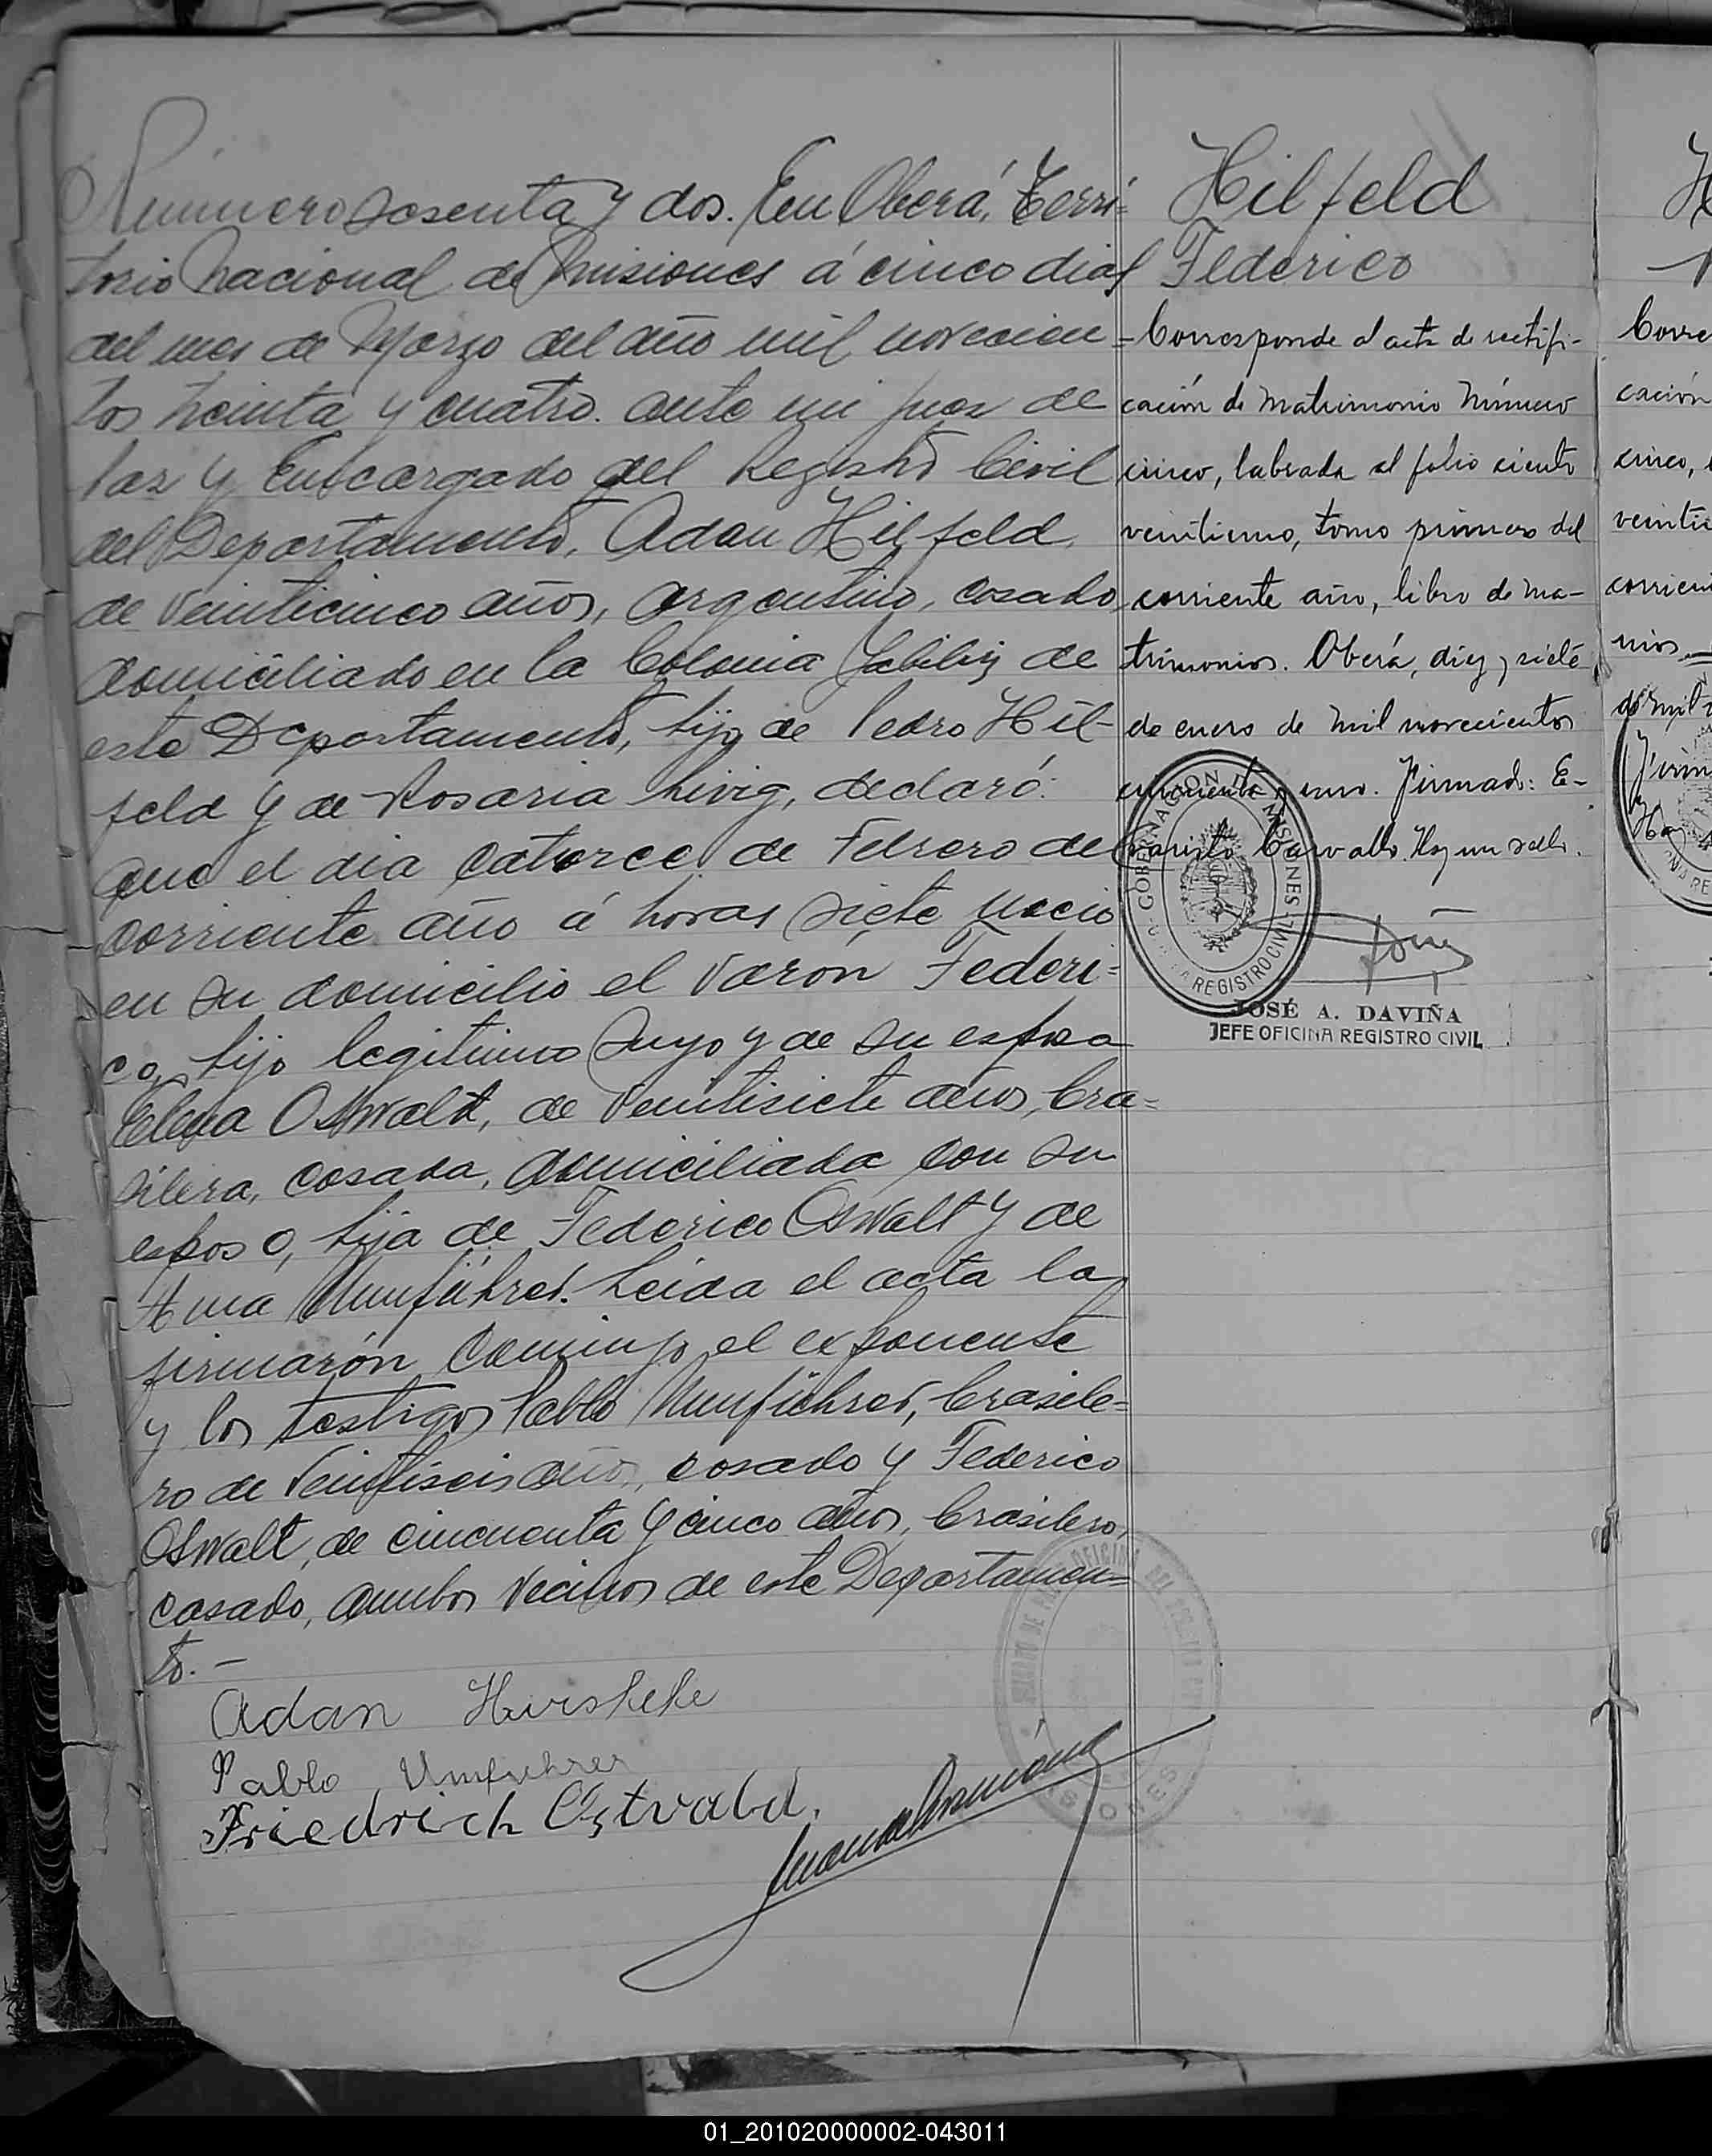 Número sesenta y dos. En Oberá, Terri=
torio Nacional de Misiones á cinco dias
del mes de Marzo del año mil novecien=
tos treinta y cuatro. ante mi Juez de
Paz y Encargado del Registro Civil
del Departamento, Adan Hilfeld,
de veinticinco años, argentino, casado
domiciliado en la Colonia Yabibiry de
este Departamento, hijo de Pedro Hil-
feld y de Rosaria Livig, declaró:
que el dia catorce de Febrero del
corriente año á horas siete nació
en su domicilio el varón Federi=
co, hijo legitimo suyo y de su esposa
Elena Oswalt, de veintisiete años, bra=
silera, casada, domiciliada con su
esposo, hija de Federico Oswalt y de
Ana Umführer. Leida el acta la
firmarón conmigo el exponente
y los testigos Pablo Umführer, brasile=
ro de veintiseis años, casado y Federico
Oswalt, de cincuenta y cinco años, brasilero,
casado, ambos vecinos de este Departamen=
to.-
Adan
Pablo Umfuhrer
Friedrich Ostvald.
Hilfeld
Federico
Corresponde al acta de rectifi-
cación de matrimonio número
cinco, labrada al folio ciento
veintiuno, tomo primero del
corriente año, libro de ma-
trimonios. Oberá, diez y siete
de enero de mil novecientos
cincuenta y uno. Firmado: E-
varisto Carvallo. Hay un sello.
GOBERNACION DE MISIONES
REGISTRO CIVIL
JOSÉ A. DAVIÑA
JEFE OFICINA REGISTRO CIVIL
cación
cinco,
01_201020000002-043011